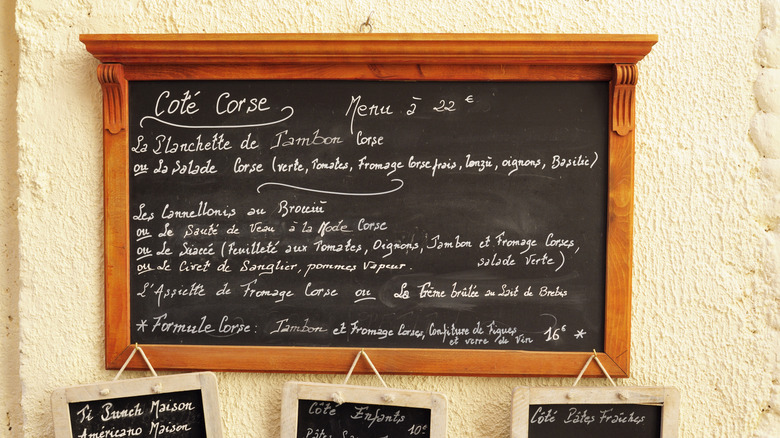 Coté Corse Menu à 22 €
La Planchette de Jambon Corse
ou La Salade Corse (verte, Tomates, Fromage Corse frais, lonzu, oignons, Basilic)
Les Cannellonis au Brocciu
ou Le Sauté de Veau à la Mode Corse
ou Le Sciaccë (Feuilleté aux Tomates, Oignons, Jambon et Fromage Corses,
salade verte)
ou Le Civet de Sanglier, pommes vapeur.
L'Assiette de Fromage Corse ou La Crème brûlée au Lait de Brebis
* Formule Corse : Jambon et Fromage Corses, Confiture de Figues
et verre de Vin 16€ *
Ti Punch Maison
Américano Maison
Côté Enfants
10€
Côté Pâtes Fraîches